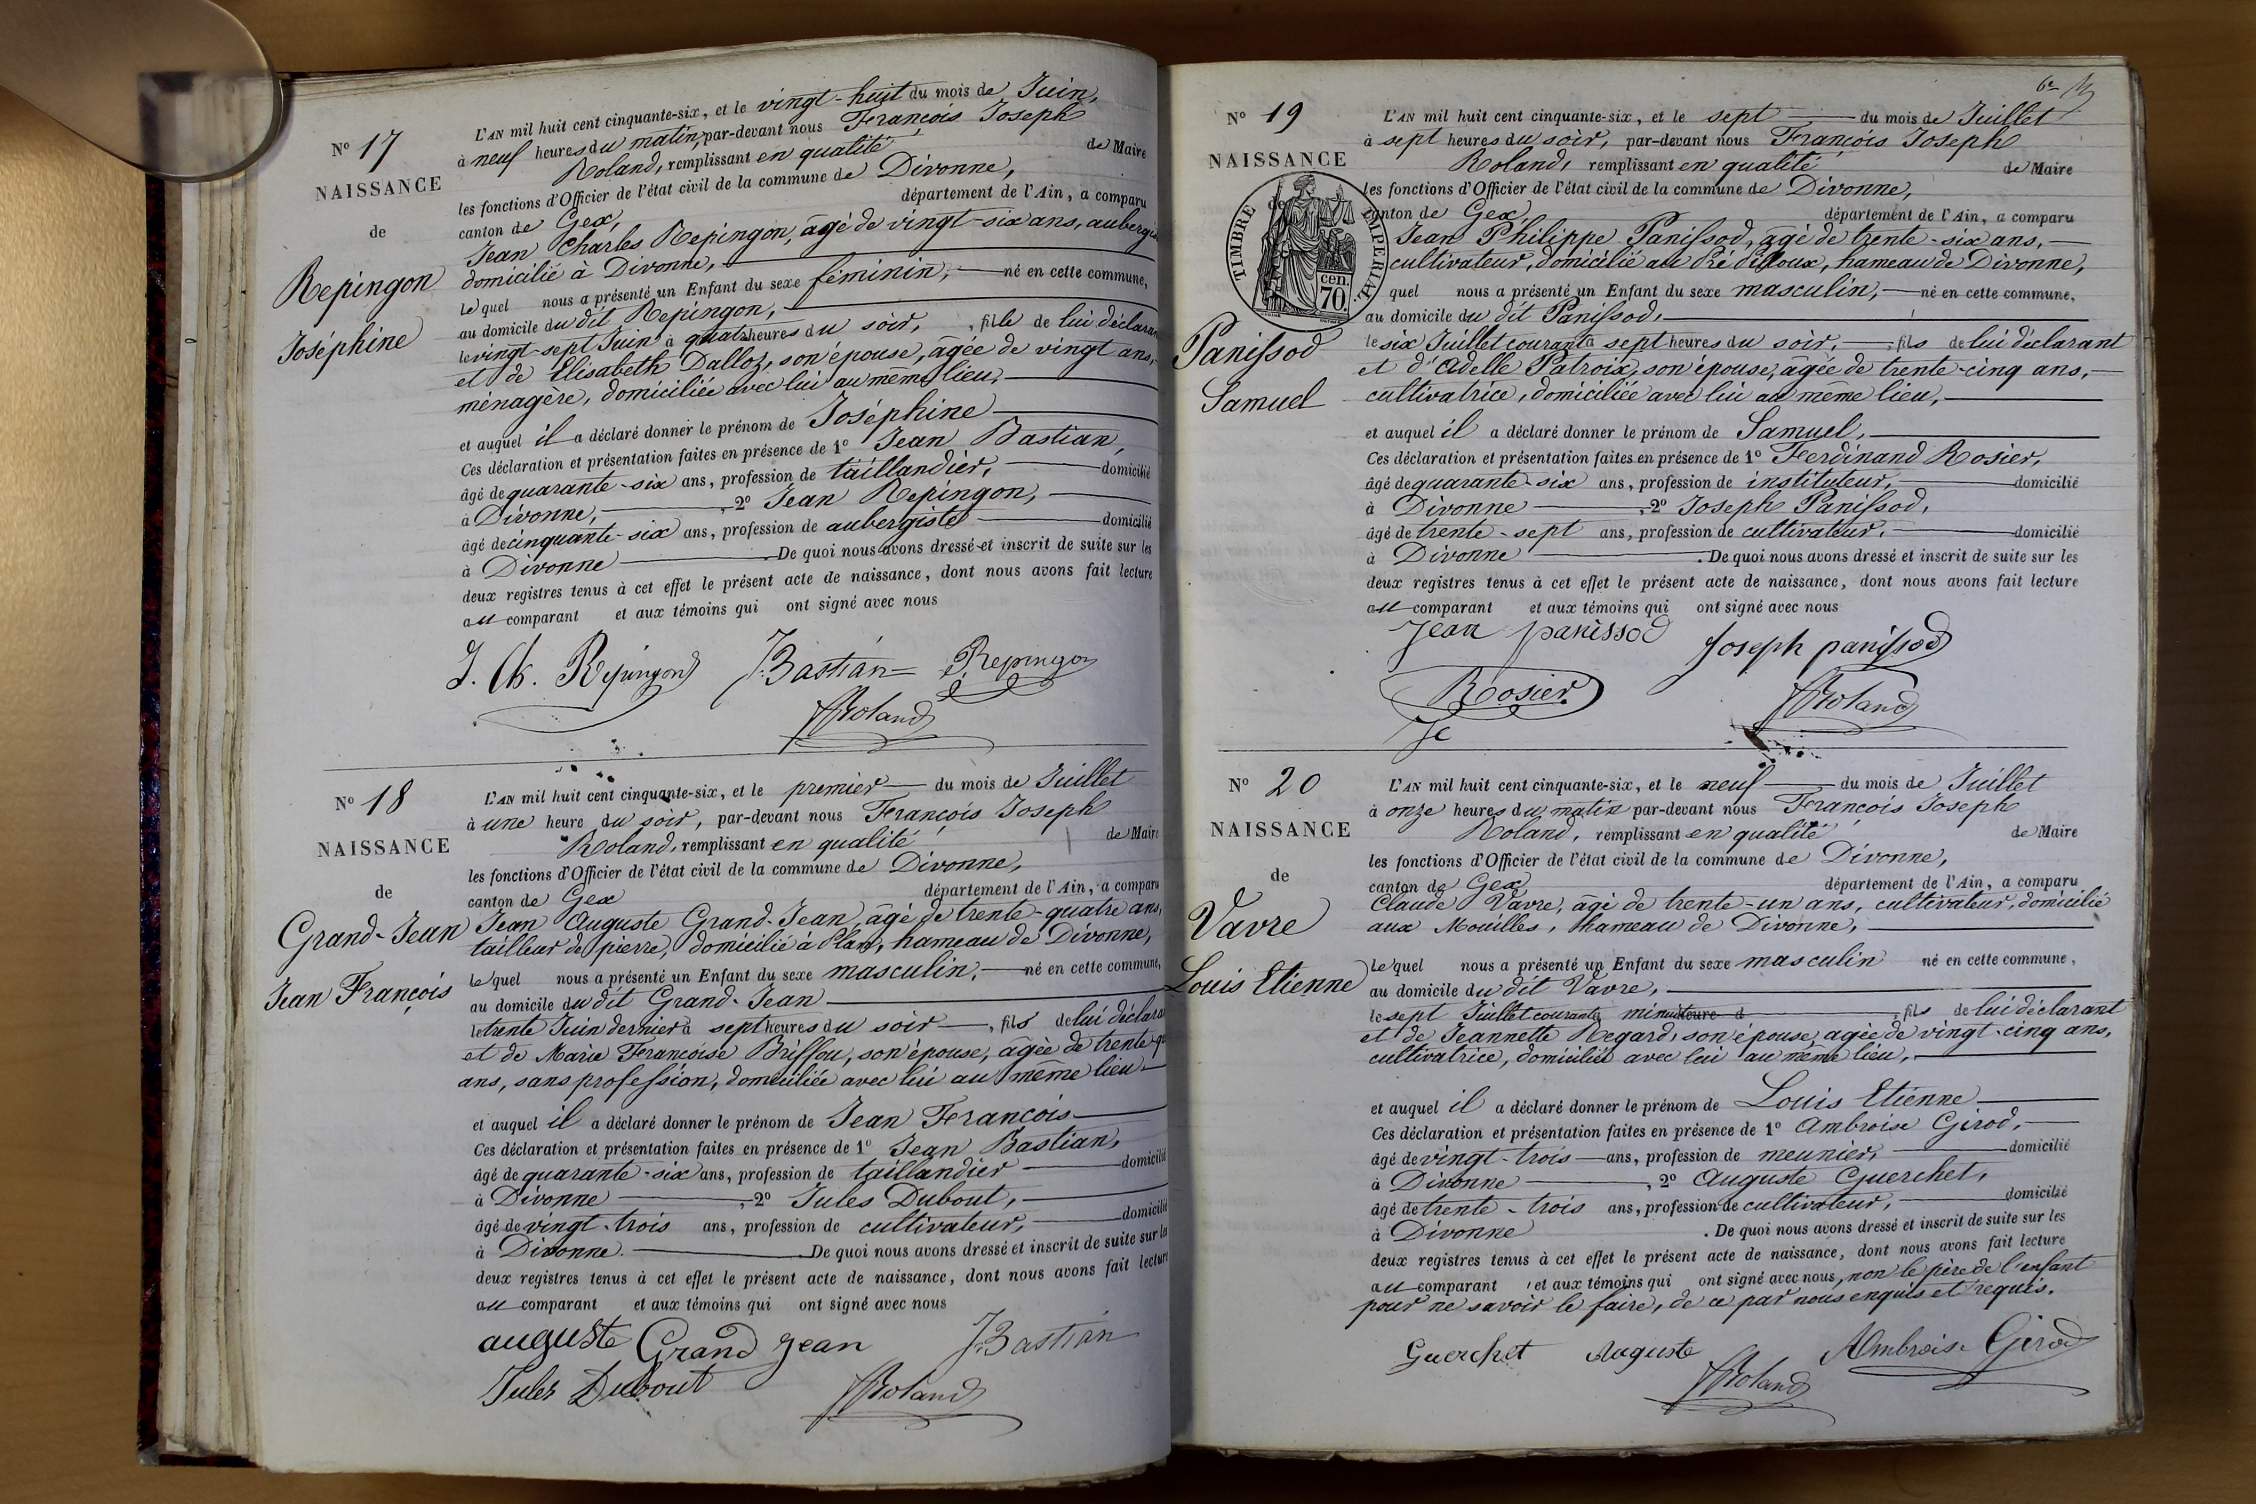 N° 17
NAISSANCE
de
Repingon
Joséphine
L'AN mil huit cent cinquante-six, et le vingt-huit du mois de Juin,
à neuf heures du matin, par-devant nous François Joseph
Roland, remplissant en qualité de Maire
les fonctions d'Officier de l'état civil de la commune de Divonne,
canton de Gex, département de l'Ain, a comparu
Jean Charles Repingon, âgé de vingt-six ans, aubergis
domicilié à Divonne,
lequel nous a présenté un Enfant du sexe féminin, né en cette commune,
au domicile du dit Repingon,
le vingt-sept Juin à quatre heures du soir, , fille de lui déclarant
et de Elisabeth Dalloz, son épouse, âgée de vingt ans,
ménagère, domiciliée avec lui au même lieu,
et auquel il a déclaré donner le prénom de Joséphine
Ces déclaration et présentation faites en présence de 1° Jean Bastian,
âgé de quarante-six ans, profession de taillandier, domicilié
à Divonne, , 2° Jean Repingon,
âgé de cinquante-six ans, profession de aubergiste domicilié
à Divonne . De quoi nous avons dressé et inscrit de suite sur les
deux registres tenus à cet effet le présent acte de naissance, dont nous avons fait lecture
au comparant et aux témoins qui ont signé avec nous
J. Ch. Repingon J. Bastian Repingon
Roland
N° 18
NAISSANCE
de
Grand-Jean
Jean François
L'AN mil huit cent cinquante-six, et le premier du mois de Juillet
à une heure du soir, par-devant nous François Joseph
Roland, remplissant en qualité de Maire
les fonctions d'Officier de l'état civil de la commune de Divonne,
canton de Gex département de l'Ain, a comparu
Jean Auguste Grand-Jean, âgé de trente-quatre ans,
tailleur de pierre, domicilié à Plan, hameau de Divonne,
lequel nous a présenté un Enfant du sexe masculin, né en cette commune,
au domicile du dit Grand-Jean
le trente Juin dernier à sept heures du soir , fils de lui déclara
et de Marie Françoise Briffou, son épouse, âgée de trente-qu
ans, sans profession, domiciliée avec lui au même lieu
et auquel il a déclaré donner le prénom de Jean François
Ces déclaration et présentation faites en présence de 1° Jean Bastian,
âgé de quarante-six ans, profession de taillandier domicilié
à Divonne , 2° Jules Dubout,
âgé de vingt-trois ans, profession de cultivateur, domicilié
à Divonne. . De quoi nous avons dressé et inscrit de suite sur les
deux registres tenus à cet effet le présent acte de naissance, dont nous avons fait lecture
au comparant et aux témoins qui ont signé avec nous
auguste Grand jean J. Bastian
Jules Dubout Roland
N° 19
NAISSANCE
de
TIMBRE IMPERIAL
70 cen.
Panissod
Samuel
L'AN mil huit cent cinquante-six, et le sept du mois de Juillet
à sept heures du soir, par-devant nous François Joseph
Roland, remplissant en qualité de Maire
les fonctions d'Officier de l'état civil de la commune de Divonne,
canton de Gex, département de l'Ain, a comparu
Jean Philippe Panissod, âgé de trente-six ans,
cultivateur, domicilié au Pré dilloux, hameau de Divonne,
quel nous a présenté un Enfant du sexe masculin, né en cette commune,
au domicile du dit Panissod,
le six Juillet courant à sept heures du soir, , fils de lui déclarant
et d'Adelle Patroix, son épouse, âgée de trente-cinq ans,
cultivatrice, domiciliée avec lui au même lieu,
et auquel il a déclaré donner le prénom de Samuel,
Ces déclaration et présentation faites en présence de 1° Ferdinand Rosier,
âgé de quarante-six ans, profession de instituteur, domicilié
à Divonne , 2° Joseph Panissod,
âgé de trente-sept ans, profession de cultivateur, domicilié
à Divonne . De quoi nous avons dressé et inscrit de suite sur les
deux registres tenus à cet effet le présent acte de naissance, dont nous avons fait lecture
au comparant et aux témoins qui ont signé avec nous
Jean panissod Joseph panissod
Rosier Roland
N° 20
NAISSANCE
de
Vavre
Louis Etienne
L'AN mil huit cent cinquante-six, et le neuf du mois de Juillet
à onze heures du matin par-devant nous François Joseph
Roland, remplissant en qualité de Maire
les fonctions d'Officier de l'état civil de la commune de Divonne,
canton de Gex, département de l'Ain, a comparu
Claude Vavre, âgé de trente-un ans, cultivateur, domicilié
aux Mouilles, hameau de Divonne,
lequel nous a présenté un Enfant du sexe masculin né en cette commune,
au domicile du dit Vavre,
le sept Juillet courant à minuit heure d , fils de lui déclarant
et de Jeannette Regard, son épouse, âgée de vingt-cinq ans,
cultivatrice, domiciliée avec lui au même lieu,
et auquel il a déclaré donner le prénom de Louis Etienne
Ces déclaration et présentation faites en présence de 1° Ambroise Girod,
âgé de vingt-trois ans, profession de meunier, domicilié
à Divonne , 2° Auguste Guerchet,
âgé de trente-trois ans, profession de cultivateur, domicilié
à Divonne . De quoi nous avons dressé et inscrit de suite sur les
deux registres tenus à cet effet le présent acte de naissance, dont nous avons fait lecture
au comparant et aux témoins qui ont signé avec nous, non le père de l'enfant
pour ne savoir le faire, de ce par nous enquis et requis.
Guerchet Auguste Ambroise Girod
Roland